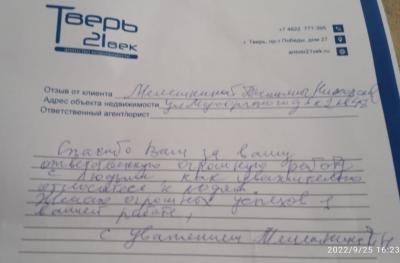 Тверь
21век
агентство недвижимости
+7 4822 777 365
г. Тверь, пр-т Победы, дом 27
antver21vek.ru
Отзыв от клиента
Адрес объекта недвижимости
Ответственный агент/юрист:
Спасибо Вам за вашу
ответственную огромную работу
с людьми, как уважительно
относитесь к людям.
Желаю огромных успехов в
вашей работе,
с уважением
2022/9/25 16:23